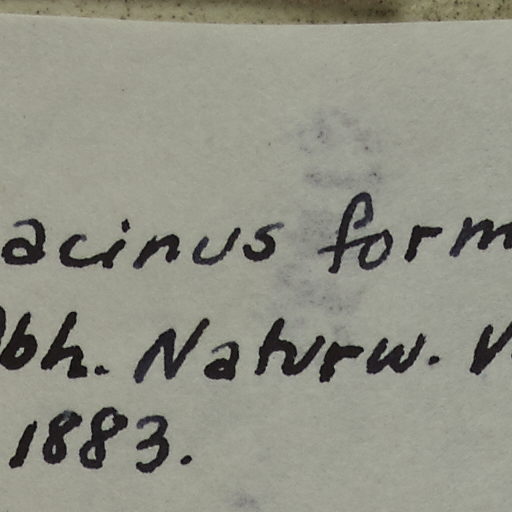 acinus form
Abh. Naturw. V
1883.